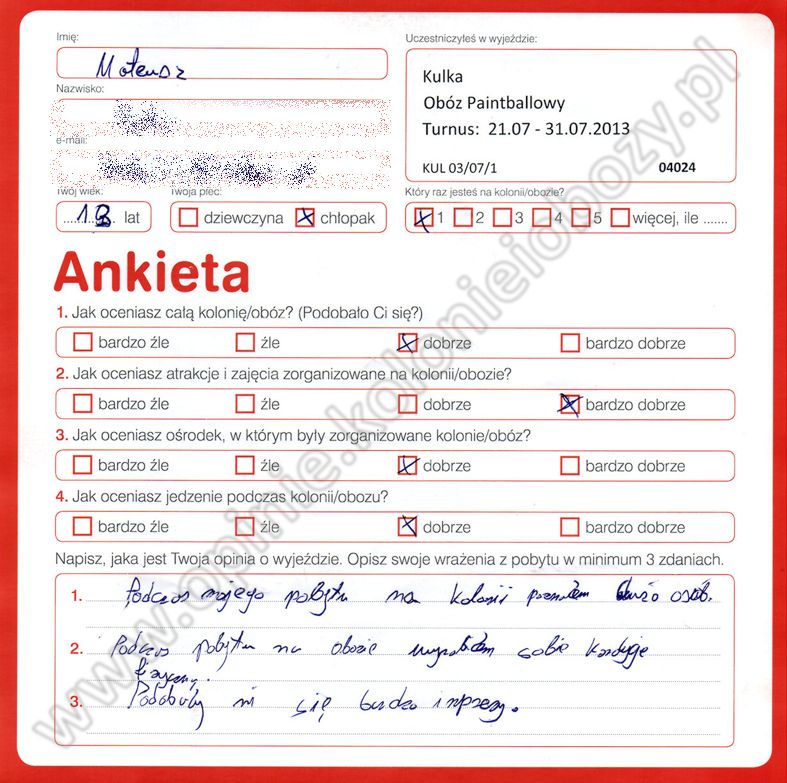 Imię:
Mateusz
Nazwisko:
e-mail:
Twój wiek:
lat
Twoja płeć:
dziewczyna
chłopak
Uczestniczyłeś w wyjeździe:
Kulka
Obóz Paintballowy
Turnus: 21.07 - 31.07.2013
KUL 03/07/1 04024
Który raz jesteś na kolonii/obozie?
1 2 3 4 5 więcej, ile .......
Ankieta
1. Jak oceniasz całą kolonię/obóz? (Podobało Ci się?)
bardzo źle źle dobrze bardzo dobrze
2. Jak oceniasz atrakcje i zajęcia zorganizowane na kolonii/obozie?
bardzo źle źle dobrze bardzo dobrze
3. Jak oceniasz ośrodek, w którym były zorganizowane kolonie/obóz?
bardzo źle źle dobrze bardzo dobrze
4. Jak oceniasz jedzenie podczas kolonii/obozu?
bardzo źle źle dobrze bardzo dobrze
Napisz, jaka jest Twoja opinia o wyjeździe. Opisz swoje wrażenia z pobytu w minimum 3 zdaniach.
1. Podczas mojego pobytu na kolonii poznałem dużo osób.
2. Podczas pobytu na obozie wyrobiłem sobie kondycje
fizyczną.
3. Podobały mi się bardzo imprezy.
www.opinie.kolonieiobozy.pl